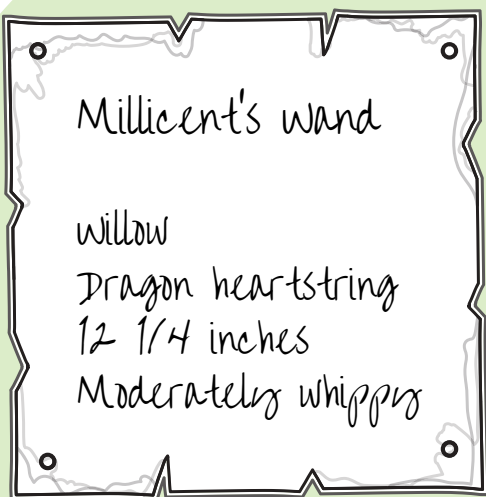 Millicent's wand
Willow
Dragon heartstring
12 1/4 inches
Moderately whippy